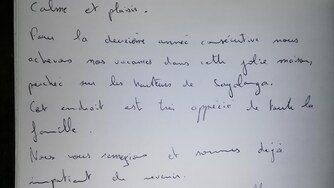 Calme et plaisir.
Pour la deuxième année consécutive nous
achevons nos vacances dans cette jolie maison,
perchée sur les hauteurs de
Cet endroit est très apprécié de toute la
famille.
Nous vous remercions et sommes déjà
impatient de revenir.